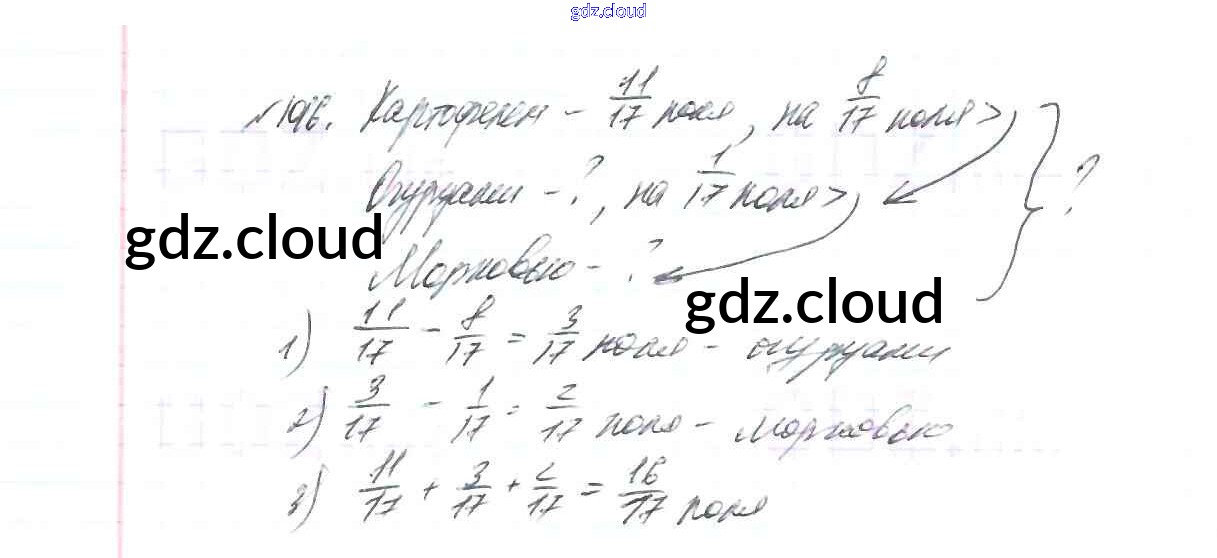 gdz.cloud
№196. Картофелем - 11/17 поля, на 8/17 поля >
Огурцами - ?, на 1/17 поля > } ?
gdz.cloud
Морковью - ?
gdz.cloud
1) 11/17 - 8/17 = 3/17 поля - огурцами
2) 3/17 - 1/17 = 2/17 поля - морковью
3) 11/17 + 3/17 + 2/17 = 16/17 поля